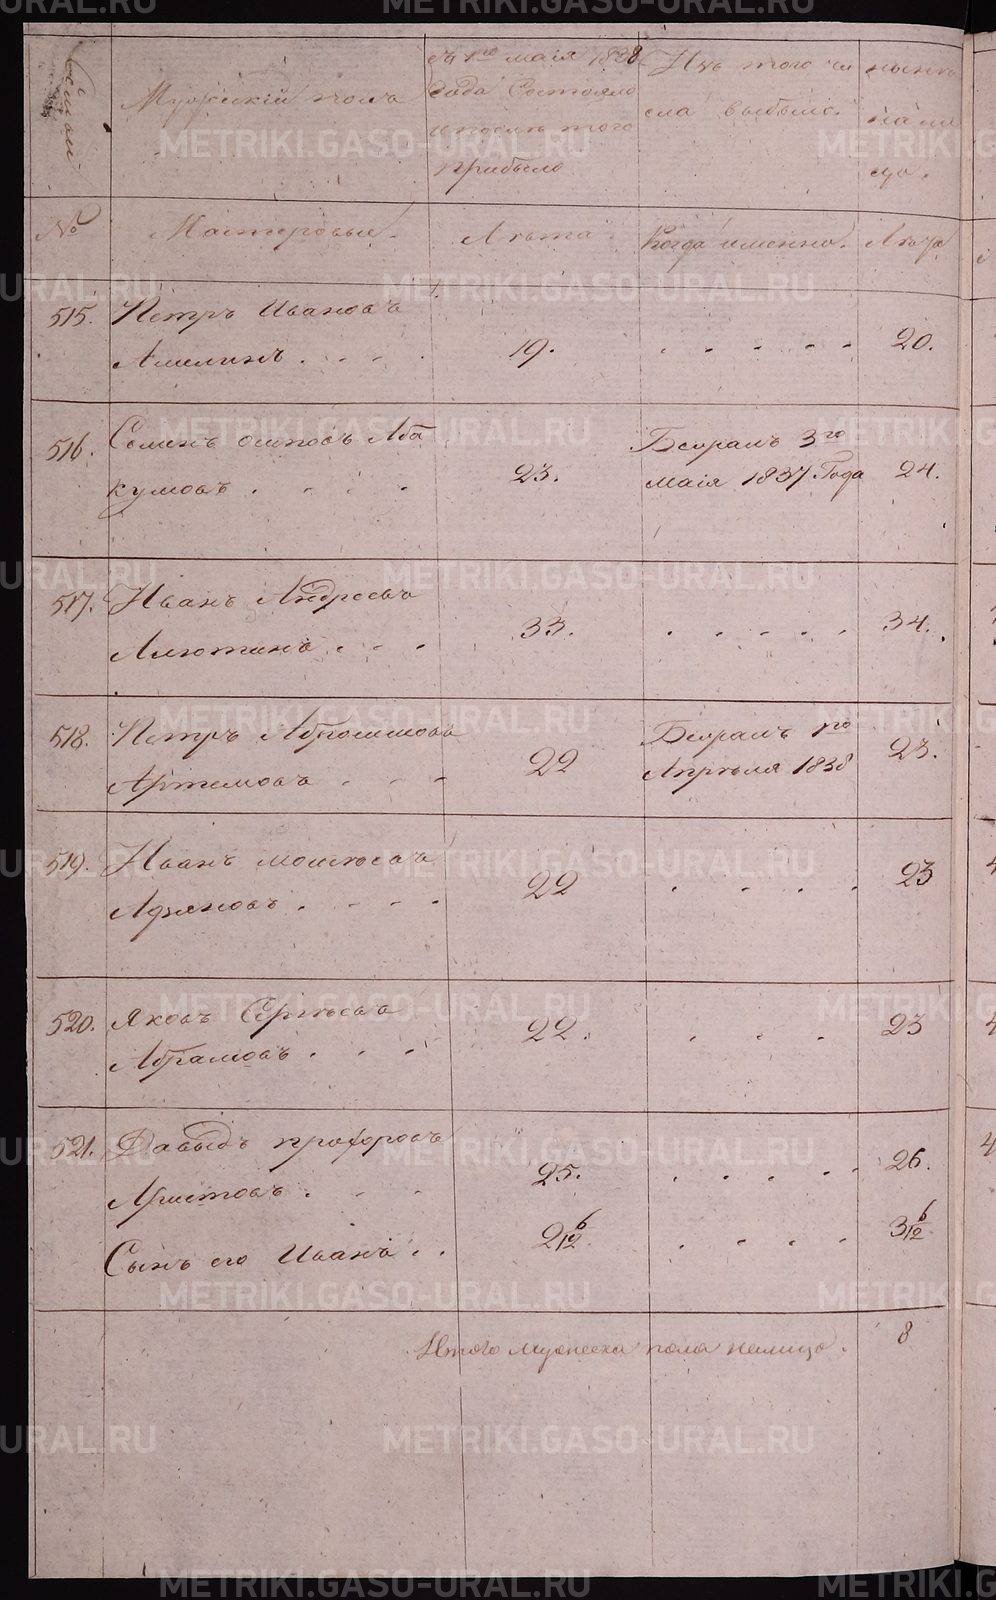 Мужескій полъ
съ 1го маія 1838
Года Состояло
и после того
прибыло
Изъ того чи
сла выбыло.
нынѣ
на ли
цо.
№
Мастеровые.
Лѣта
Когда именно.
Лѣта
515. Петръ Ивановъ
Амелинъ . . . . 19. . . . . . 20.
516. Семенъ осиповъ Аба
кумовъ . . . . 23.
Беѣралъ 3го
маія 1837 Года 24.
517. Иванъ Андреевъ
Алютинъ . . . 33. . . . . . 34.
518. Петръ Абросимовъ
Артемовъ . . . 22
Беѣралъ 1го
Апрѣля 1838 23.
519. Иванъ мосѣевъ
Адѣяновъ . . . . 22 . . . . 23
520. Яковъ Сергѣевъ
Абрамовъ . . . 22. . . . 23
521. Давыдъ прохоровъ
Аристовъ . . . 25. . . . . . 26.
Сынъ его Иванъ . . 2 6/12 . . . . . 3 6/12
Итого мужеска пола налицо. 8
METRIKI.GASO-URAL.RU